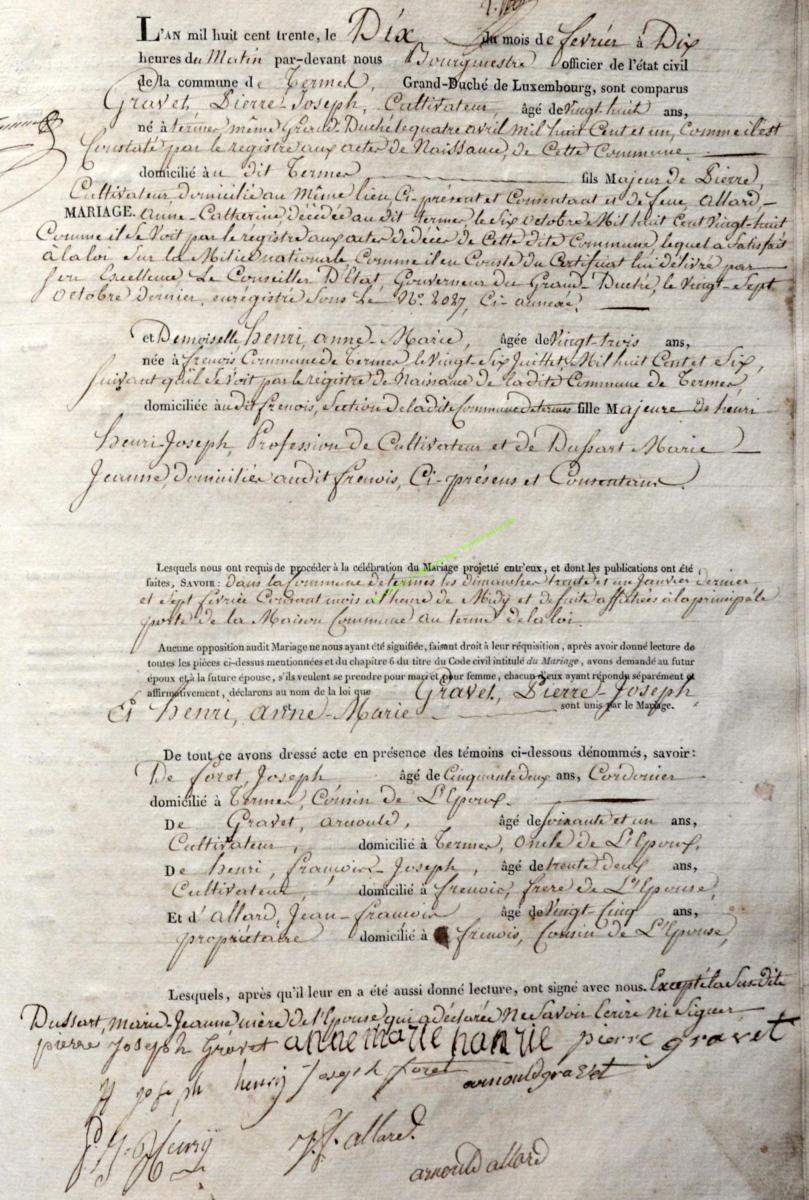 L'AN mil huit cent trente, le Dix du mois de fevrier à Dix
heures du Matin par-devant nous Bourguemestre officier de l'état civil
de la commune de Termes, Grand-Duché de Luxembourg, sont comparus
Gravet, Pierre-Joseph, Cultivateur, âgé de Vingt huit ans,
né à termes, même Grand-Duché le quatre avril mil huit Cent et un, Comme il est
Constaté par le registre aux actes de Naissance, de Cette Commune.
domicilié au dit Termes fils Majeur de Pierre,
Cultivateur domicilié au Même lieu, Ci-présent et Consentant et de feue, Allard,
MARIAGE. Anne-Catharine, décédée au dit termes le Six octobre Mil huit Cent Vingt-huit
Comme il se Voit par le registre aux actes de décès de Cette dite Commune, lequel a Satisfait
à la loi Sur la Milice nationale Comme il en Conste du Certificat lui délivré par
Son Excellence, Le Conseiller D'État, Gouverneur du Grand-Duché, le Vingt-Sept
Octobre dernier, enregistré Sous Le N°. 2027, Ci-annexé.
et Demoiselle henri, anne-Marie, âgée de Vingt-trois ans,
née à frenois Commune de Termes le Vingt-Six Juillet Mil huit Cent et Six,
suivant qu'il se Voit par le registre de Naissance de la dite Commune de Termes,
domiciliée au dit frenois, Section de la dite Commune de termes fille Majeure de henri
henri-Joseph, Profession de Cultivateur et de Dussart Marie
Jeanne, domiciliés au dit frenois, Ci-présens et Consentans.
Lesquels nous ont requis de procéder à la célébration du Mariage projetté entr'eux, et dont les publications ont été
faites, SAVOIR: dans la Commune de termes les dimanches trente et un Janvier dernier
et Sept fevrier Courant mois à l'heure de Midy et de suite affichées à la principale
porte de la Maison Commune au terme de la loi.
Aucune opposition audit Mariage ne nous ayant été signifiée, faisant droit à leur réquisition, après avoir donné lecture de
toutes les pièces ci-dessus mentionnées et du chapitre 6 du titre du Code civil intitulé du Mariage, avons demandé au futur
époux et à la future épouse, s'ils veulent se prendre pour mari et pour femme, chacun d'eux ayant répondu séparément et
affirmativement, déclarons au nom de la loi que Gravet, Pierre-Joseph
Et henri, anne-Marie sont unis par le Mariage.
De tout ce avons dressé acte en présence des témoins ci-dessous dénommés, savoir:
De foret, Joseph âgé de Cinquante deux ans, Cordonier
domicilié à Termes, Cousin de L'Epoux.
De Gravet, arnould, âgé de soixante et un ans,
Cultivateur, domicilié à Termes, Oncle de L'Epoux,
De henri, francois-Joseph, âgé de trente deux ans,
Cultivateur domicilié à frenois, frere de L'Epouse,
Et d'Allard, Jean-francois âgé de Vingt-Cinq ans,
propriétaire domicilié à frenois, Cousin de L'Epouse,
Lesquels, après qu'il leur en a été aussi donné lecture, ont signé avec nous. Excepté la Susdite
Dussart, marie-Jeanne, mère de l'Epouse qui a déclarée Ne Savoir Ecrire ni Signer
pierre Joseph Gravet anne marie hanrie pierre gravet
H joseph henry Joseph foret arnould gravet
f. J. Henry J. f. allard.
arnould allard